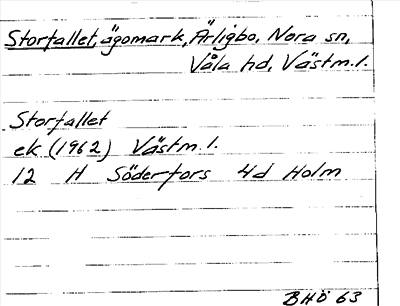 Storfallet, ägomark, Ärligbo, Nora sn,
Våla hd, Västm.l.
Storfallet
ek (1962) Västm.l.
12 H Söderfors 4d Holm
BHÖ 63